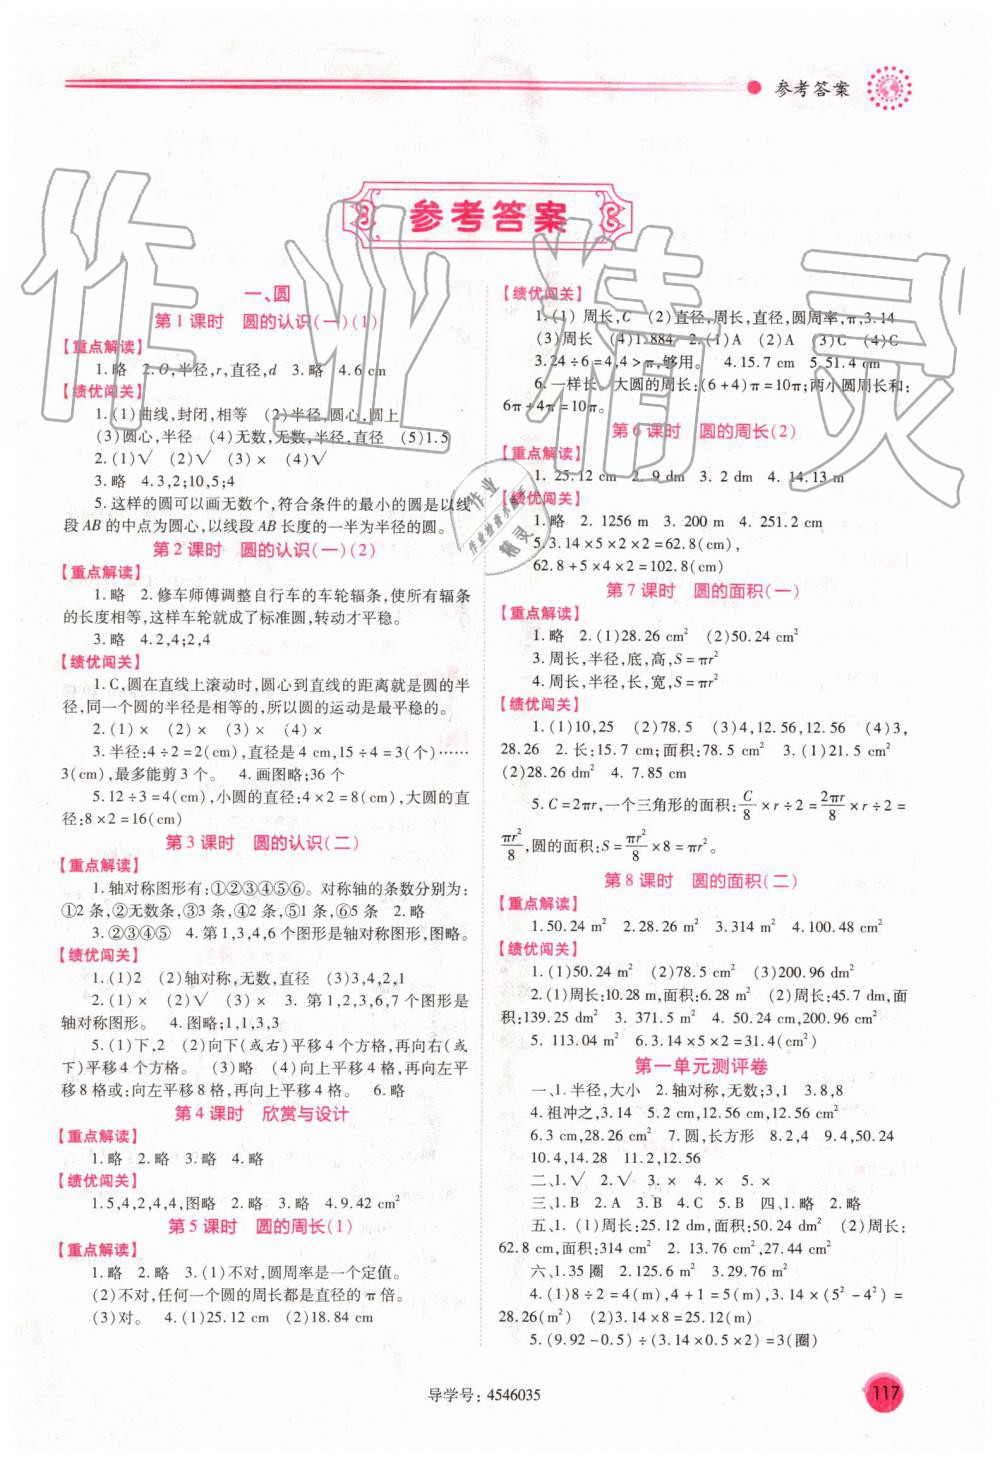 参考答案
参考答案
一、圆
第1课时 圆的认识(一)(1)
【重点解读】
1.略 2.O,半径,r,直径,d 3.略 4.6 cm
【绩优闯关】
1.(1)曲线,封闭,相等 (2)半径,圆心,圆上
(3)圆心,半径 (4)无数,无数,半径,直径 (5)1.5
2.(1)√ (2)√ (3)× (4)√
3.略 4.3,2;10,5;4
5.这样的圆可以画无数个,符合条件的最小的圆是以线
段AB的中点为圆心,以线段AB长度的一半为半径的圆。
第2课时 圆的认识(一)(2)
【重点解读】
1.略 2.修车师傅调整自行车的车轮辐条,使所有辐条
的长度相等,这样车轮就成了标准圆,转动才平稳。
3.略 4.2,4;2
【绩优闯关】
1.C,圆在直线上滚动时,圆心到直线的距离就是圆的半
径,同一个圆的半径是相等的,所以圆的运动是最平稳的。
2.(1)× (2)× (3)× (4)×
3.半径:4÷2=2(cm),直径是4 cm,15÷4=3(个)……
3(cm),最多能剪3个。 4.画图略;36个
5.12÷3=4(cm),小圆的直径:4×2=8(cm),大圆的直
径:8×2=16(cm)
第3课时 圆的认识(二)
【重点解读】
1.轴对称图形有:①②③④⑤⑥。对称轴的条数分别为:
①2条,②无数条,③3条,④2条,⑤1条,⑥5条 2.略
3.②③④⑤ 4.第1,3,4,6个图形是轴对称图形,图略。
【绩优闯关】
1.(1)2 (2)轴对称,无数,直径 (3)3,4,2,1
2.(1)× (2)√ (3)× 3.第1,2,3,6,7个图形是
轴对称图形。 4.图略;1,1,3,3
5.(1)下,2 (2)向下(或右)平移4个方格,再向右(或
下)平移4个方格。 (3)略 (4)向上平移4个方格,再向左平
移8个方格或:向左平移8格,再向上平移4格。 6.略
第4课时 欣赏与设计
【重点解读】
1.略 2.略 3.略 4.略
【绩优闯关】
1.5,4,2,4,4,图略 2.略 3.略 4.9.42 cm²
第5课时 圆的周长(1)
【重点解读】
1.略 2.略 3.(1)不对,圆周率是一个定值。
(2)不对,任何一个圆的周长都是直径的π倍。
(3)对。 4.(1)25.12 cm (2)18.84 cm
【绩优闯关】
1.(1)周长,C (2)直径,周长,直径,圆周率,π,3.14
(3)周长 (4)1.884 2.(1)A (2)A (3)C (4)C
3.24÷6=4,4>π,够用。 4.15.7 cm 5.51.4 cm
6.一样长。大圆的周长:(6+4)π=10π;两小圆周长和:
6π+4π=10π。
第6课时 圆的周长(2)
【重点解读】
1.25.12 cm 2.9 dm 3.2 dm 4.14.13 m
【绩优闯关】
1.略 2.1256 m 3.200 m 4.251.2 cm
5.3.14×5×2×2=62.8(cm),
62.8+5×4×2=102.8(cm)
第7课时 圆的面积(一)
【重点解读】
1.略 2.(1)28.26 cm² (2)50.24 cm²
3.周长,半径,底,高,S=πr²
4.周长,半径,长,宽,S=πr²
【绩优闯关】
1.(1)10,25 (2)78.5 (3)4,12.56,12.56 (4)3,
28.26 2.长:15.7 cm;面积:78.5 cm² 3.(1)21.5 cm²
(2)28.26 dm² 4.7.85 cm
5.C=2πr,一个三角形的面积:C/8×r÷2=2πr/8×r÷2=
πr²/8,圆的面积:S=πr²/8×8=πr²。
第8课时 圆的面积(二)
【重点解读】
1.50.24 cm² 2.28.26 m² 3.314 m² 4.100.48 cm²
【绩优闯关】
1.(1)50.24 m² (2)78.5 cm² (3)200.96 dm²
2.(1)周长:10.28 m,面积:6.28 m² (2)周长:45.7 dm,面
积:139.25 dm² 3.371.5 m² 4.50.24 cm,200.96 cm²
5.113.04 m² 6.3.14×5×2=31.4(cm²)
第一单元测评卷
一、1.半径,大小 2.轴对称,无数;3,1 3.8,8
4.祖冲之,3.14 5.2 cm,12.56 cm,12.56 cm²
6.3 cm,28.26 cm² 7.圆,长方形 8.2,4 9.4,50.24
10.4,14.28 11.2,12.56
二、1.√ 2.√ 3.× 4.× 5.×
三、1.B 2.A 3.B 4.C 5.B 四、1.略 2.略
五、1.(1)周长:25.12 dm,面积:50.24 dm² (2)周长:
62.8 cm,面积:314 cm² 2.13.76 cm²,27.44 cm²
六、1.35圈 2.125.6 m² 3.29.76 m²
4.(1)8÷2=4(m),4+1=5(m),3.14×(5²-4²)=
28.26(m²) (2)3.14×8=25.12(m)
5.(9.92-0.5)÷(3.14×0.5×2)=3(圈)
作业精灵
作业
作业检查小帮手
精灵
导学号:4546035
117